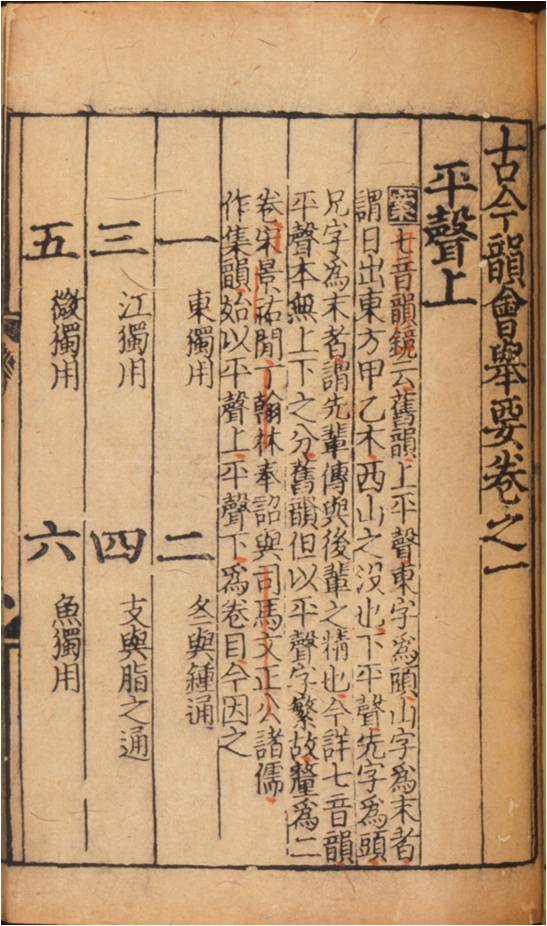 古今韻會舉要卷之一
平聲上
案七音韻鏡云舊韻上平聲東字為頭山字為末者
謂日出東方甲乙木西山之没也下平聲先字為頭
兄字為末者謂先輩傳與後輩之精也今詳七音韻
平聲本無上下之分舊韻但以平聲字繁故釐為二
卷宋景祐間丁翰林奉詔與司馬文正公諸儒
作集韻始以平聲上平聲下為卷目今因之
一 東獨用 二 冬與鍾通
三 江獨用 四 支與脂之通
五 微獨用 六 魚獨用